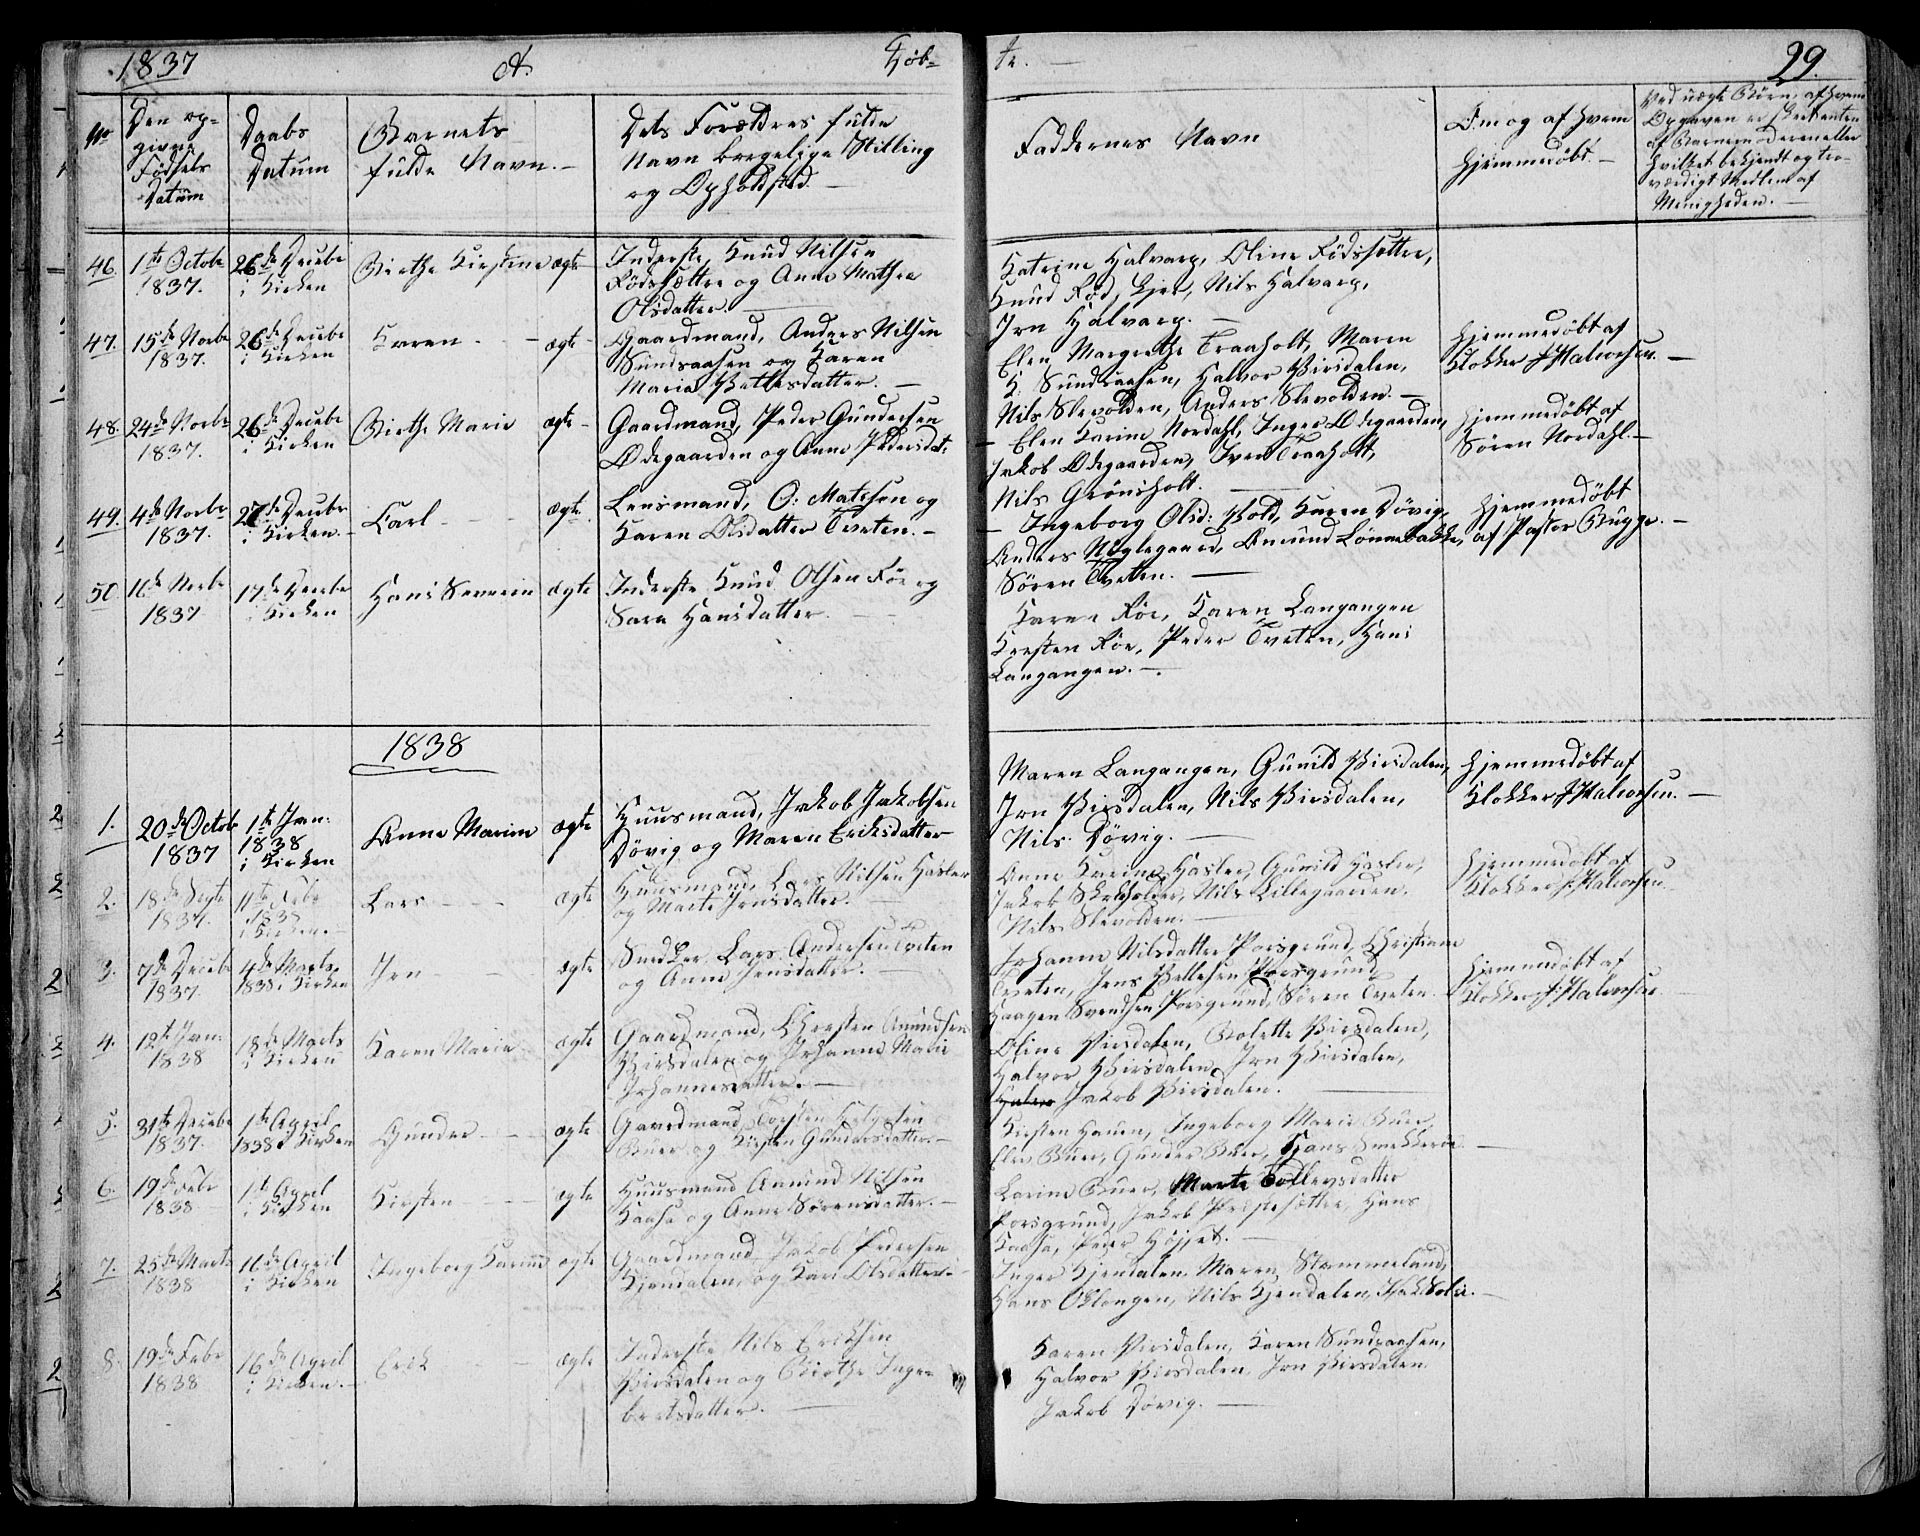 1837 A. Døb- te. 29.
No
Den op-
givne
Fødsels
Datum
Daabs
Datum
Barnets
fulde Navn.
Dets Forældres fulde
Navn borgelige Stilling
og Opholdsted.
Faddernes Navn
Om og af hvem
hjemmedøbt.
Ved uægte Børn, af hvem
Opgaven er skeet enten
af Barnemoderen eller
hvilket bekjendt og tro-
værdigt Medlem af
Menigheden.
46. 1te Octobr 1837. 26de Decebr i Kirken Birthe Kirstine ægte
Inderste, Knud Nilsen
Rødssættre og Anne Mathea
Olsdatter.
Katrine Halvarp, Oline Rødssettre,
Knud Rød, Nils Halvarp,
Jon Halvarp.
47. 15de Novbr 1837. 26de Decebr i Kirken Karen ægte
Gaardmand, Anders Nilsen
Sundsaasen og Karen
Maria Pettersdatter.
Elen Margrethe Traaholt, Maren
K. Sundsaasen, Halvor Virsdalen,
Nils Slevolden, Anders Slevolden.
Hjemmedøbt af
Klokker J Halvorsen.
48. 24de Novbr 1837. 26de Decebr i Kirken Birthe Marie ægte
Gaardmand, Peder Gundersen
Ødegaarden og Anne Pedersdat:
Elen Karine Nordahl, Inger Ødegaarden,
Jakob Ødegaarden, Iver Traaholt,
Nils Grønsholt.
Hjemmedøbt af
Søren Nordahl.
49. 4de Novbr 1837. 27de Decebr i Kirken. Carl ægte.
Lensmand, O. Matesen og
Karen Olsdatter Tveten.
Ingeborg Olsd: Hold, Karen Døvig,
Anders Nøglegaard, Amund Lønnebakke,
Søren Tveten.
Hjemmedøbt
af Pastor Bugge.
50 16de Novbr 1837. 17de Decebr i Kirken Hans Severin ægte
Inderste Knud Olsen Røe og
Sara Hansdatter.
Karen Røe, Karen Langangen
Kresten Røe, Peder Tveten, Hans
Langangen.
1838
1. 20de Octob 1837 1te Jan: 1838 i Kirken Anne Marine ægte
Huusmand, Jakob Jakobsen
Døvig og Maren Eriksdatter
Maren Langangen, Gunild Virsdalen,
Jon Virsdalen, Nils Virsdalen,
Nils Døvig.
Hjemmedøbt af
Klokker J Halvorsen.
2. 18de Septr 1837. 11te Febr 1838 i Kirken. Lars ægte
Huusmand, Lars Nilsen Hasler
og Marte Jensdatter.
Anne Karine Hasler, Gunild Hasler,
Jakob Nils Lillegaarden,
Nils Slevolden.
Hjemmedøbt af
Klokker J. Halvorsen.
3. 7de Decebr 1837. 4de Marts 1838 i Kirken Jon ægte
Smed Lars Andersen Tveten
og Anne Jensdatter.
Johanne Nilsdatter Porsgrund, Christiane
Tveten, Jens Pettersen Porsgrund,
Haagen Svendsen Porsgrund, Søren Tveten.
Hjemmedøbt af
Klokker J: Halvorsen.
4. 12te Jan: 1838 18de Marts i Kirken Karen Marie ægte
Gaardmand, Chresten Amundsen
Virsdalen og Johanne Marie
Johannesdatter.
Oline Virsdalen, Bolette Virsdalen,
Halvor Virsdalen, Jon Virsdalen,
Halvor Jakob Virsdalen.
5. 31te Decebr 1837. 1te April 1838 i Kirken Gunder ægte
Gaardmand, Torsten
Buer og Kirsten Gundersdatter.
Kirsten Hauen, Ingeborg Marie Buer,
Elev Buer, Gunder Buer, Hans Smekkeraa.
6. 19de Febr 1838 1te April i Kirken Kirsten ægte
Huusmand Amund Nilsen
Kaasa og Anne Sørensdatter.
Karine Buer, Marte Tollevsdatter
Porsgrund, Jakob Prestesetter, Hans
Kaasa, Peder Højset.
7. 25de Marts 1838 16de April i Kirken Ingeborg Karine ægte
Gaardmand Jakob Pedersen
Kjendalen, og Kari Olsdatter.
Inger Kjendalen, Maren Stammeland,
Hans Oklongen, Nils Kjendalen,
8. 19de Febr 1838 16de April i Kirken. Erik ægte
Inderste Nils Eriksen
Virsdalen og Birthe Inge-
bretsdatter.
Karen Virsdalen, Karen Sundsaasen,
Halvor Virsdalen, Jon Virsdalen
Jakob Døvig.